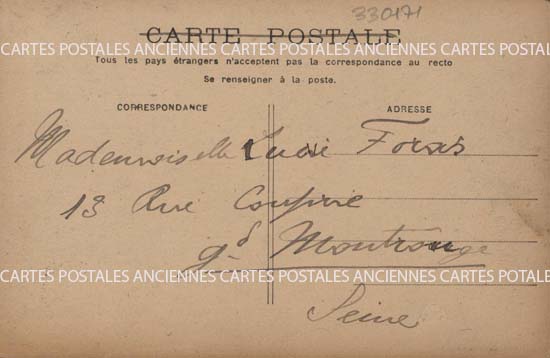 330171
CARTE POSTALE
CARTES POSTALES ANCIENNES CARTES POSTALES ANCIENNES CARTES POSTALES
Tous les pays étrangers n'acceptent pas la correspondance au recto
Se renseigner à la poste.
CORRESPONDANCE
ADRESSE
Mademoiselle Lucie
13 Rue
gd Montrouge
CARTES POSTALES ANCIENNES CARTES POSTALES ANCIENNES CARTES POTALES
Seine